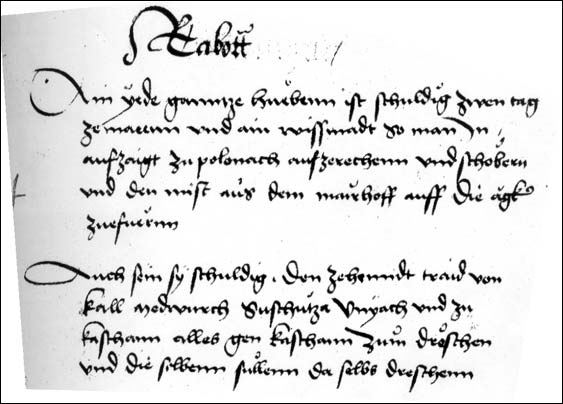 Rabott
Ain yede ganntze huebenn ist schuldig zwen tag
ze maeenn und ain wissmadt so man In
aufzaigt zu polonach aufzerechenn und schobern
und den mist aus dem mairhoff auff die agk
zuefuernn
Auch sein sy schuldig. Den zehenndt traid von
Kall Medwurch Suschutza Unyach und zu
kaschann alles gen kaschann zum dreschen
und die silbenn sullenn da selbs dreschenn